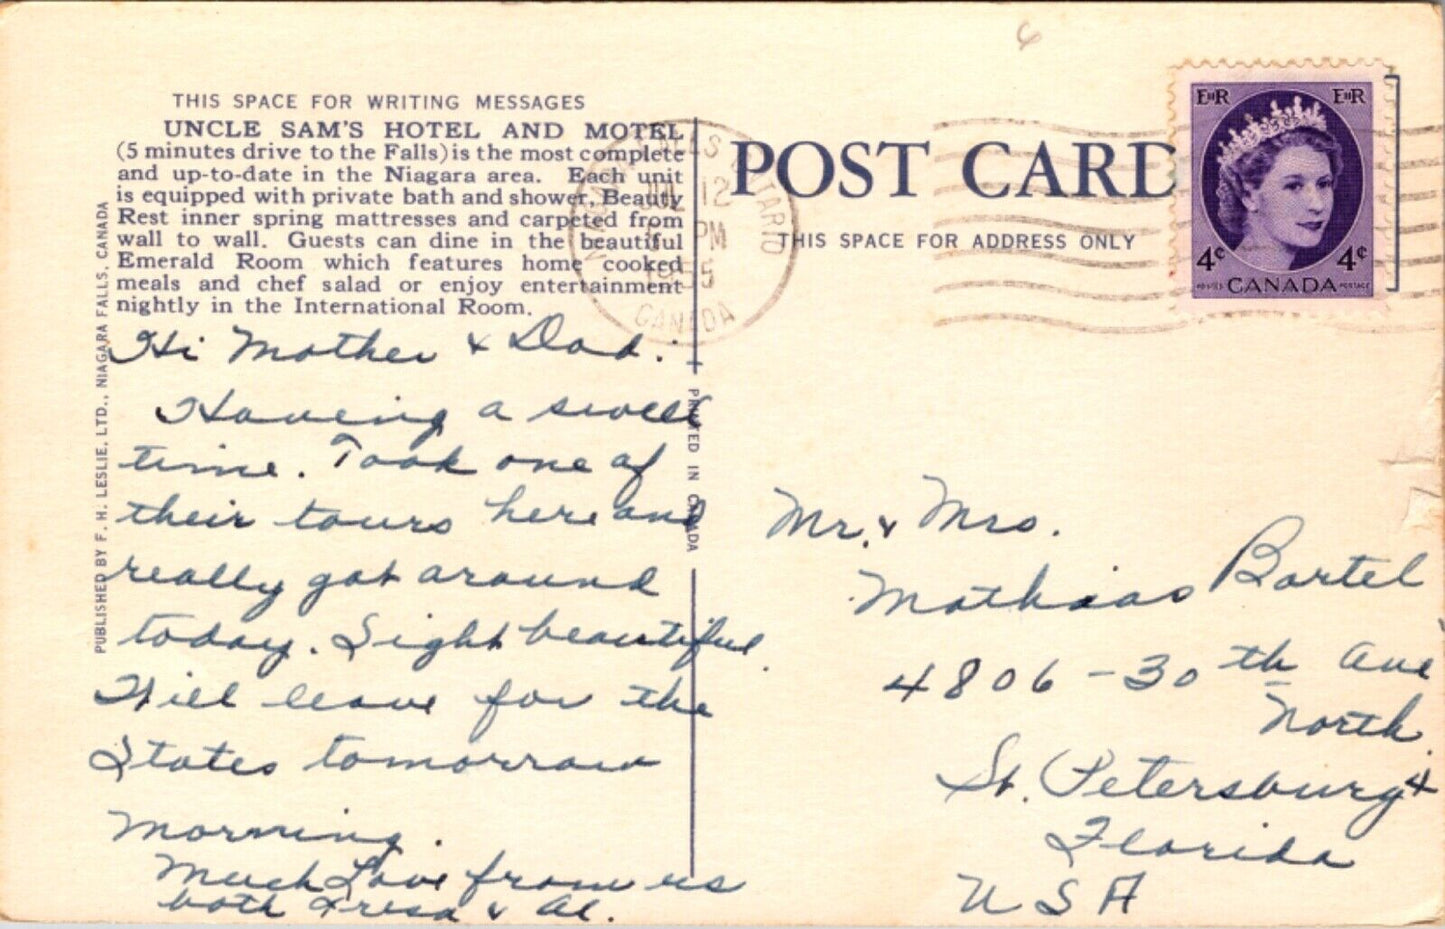 THIS SPACE FOR WRITING MESSAGES
UNCLE SAM'S HOTEL AND MOTEL
(5 minutes drive to the Falls) is the most complete
and up-to-date in the Niagara area. Each unit
is equipped with private bath and shower, Beauty
Rest inner spring mattresses and carpeted from
wall to wall. Guests can dine in the beautiful
Emerald Room which features home cooked
meals and chef salad or enjoy entertainment
nightly in the International Room.
PUBLISHED BY F. H. LESLIE, LTD., NIAGARA FALLS, CANADA
Hi Mother & Dad.
Having a swell
time. Took one of
their tours here and
really got around
today. Sight beautiful.
Will leave for the
States tomorrow
morning.
Much Love from us
both & Al.
PRINTED IN CANADA
FALLS ONTARIO
12
PM
CANADA
POST CARD
THIS SPACE FOR ADDRESS ONLY
EIIR EIIR
4¢ 4¢
POSTES CANADA POSTAGE
Mr. & Mrs.
Mathias Bartel
4806-30th Ave
North.
St. Petersburg 4
Florida
USA
6